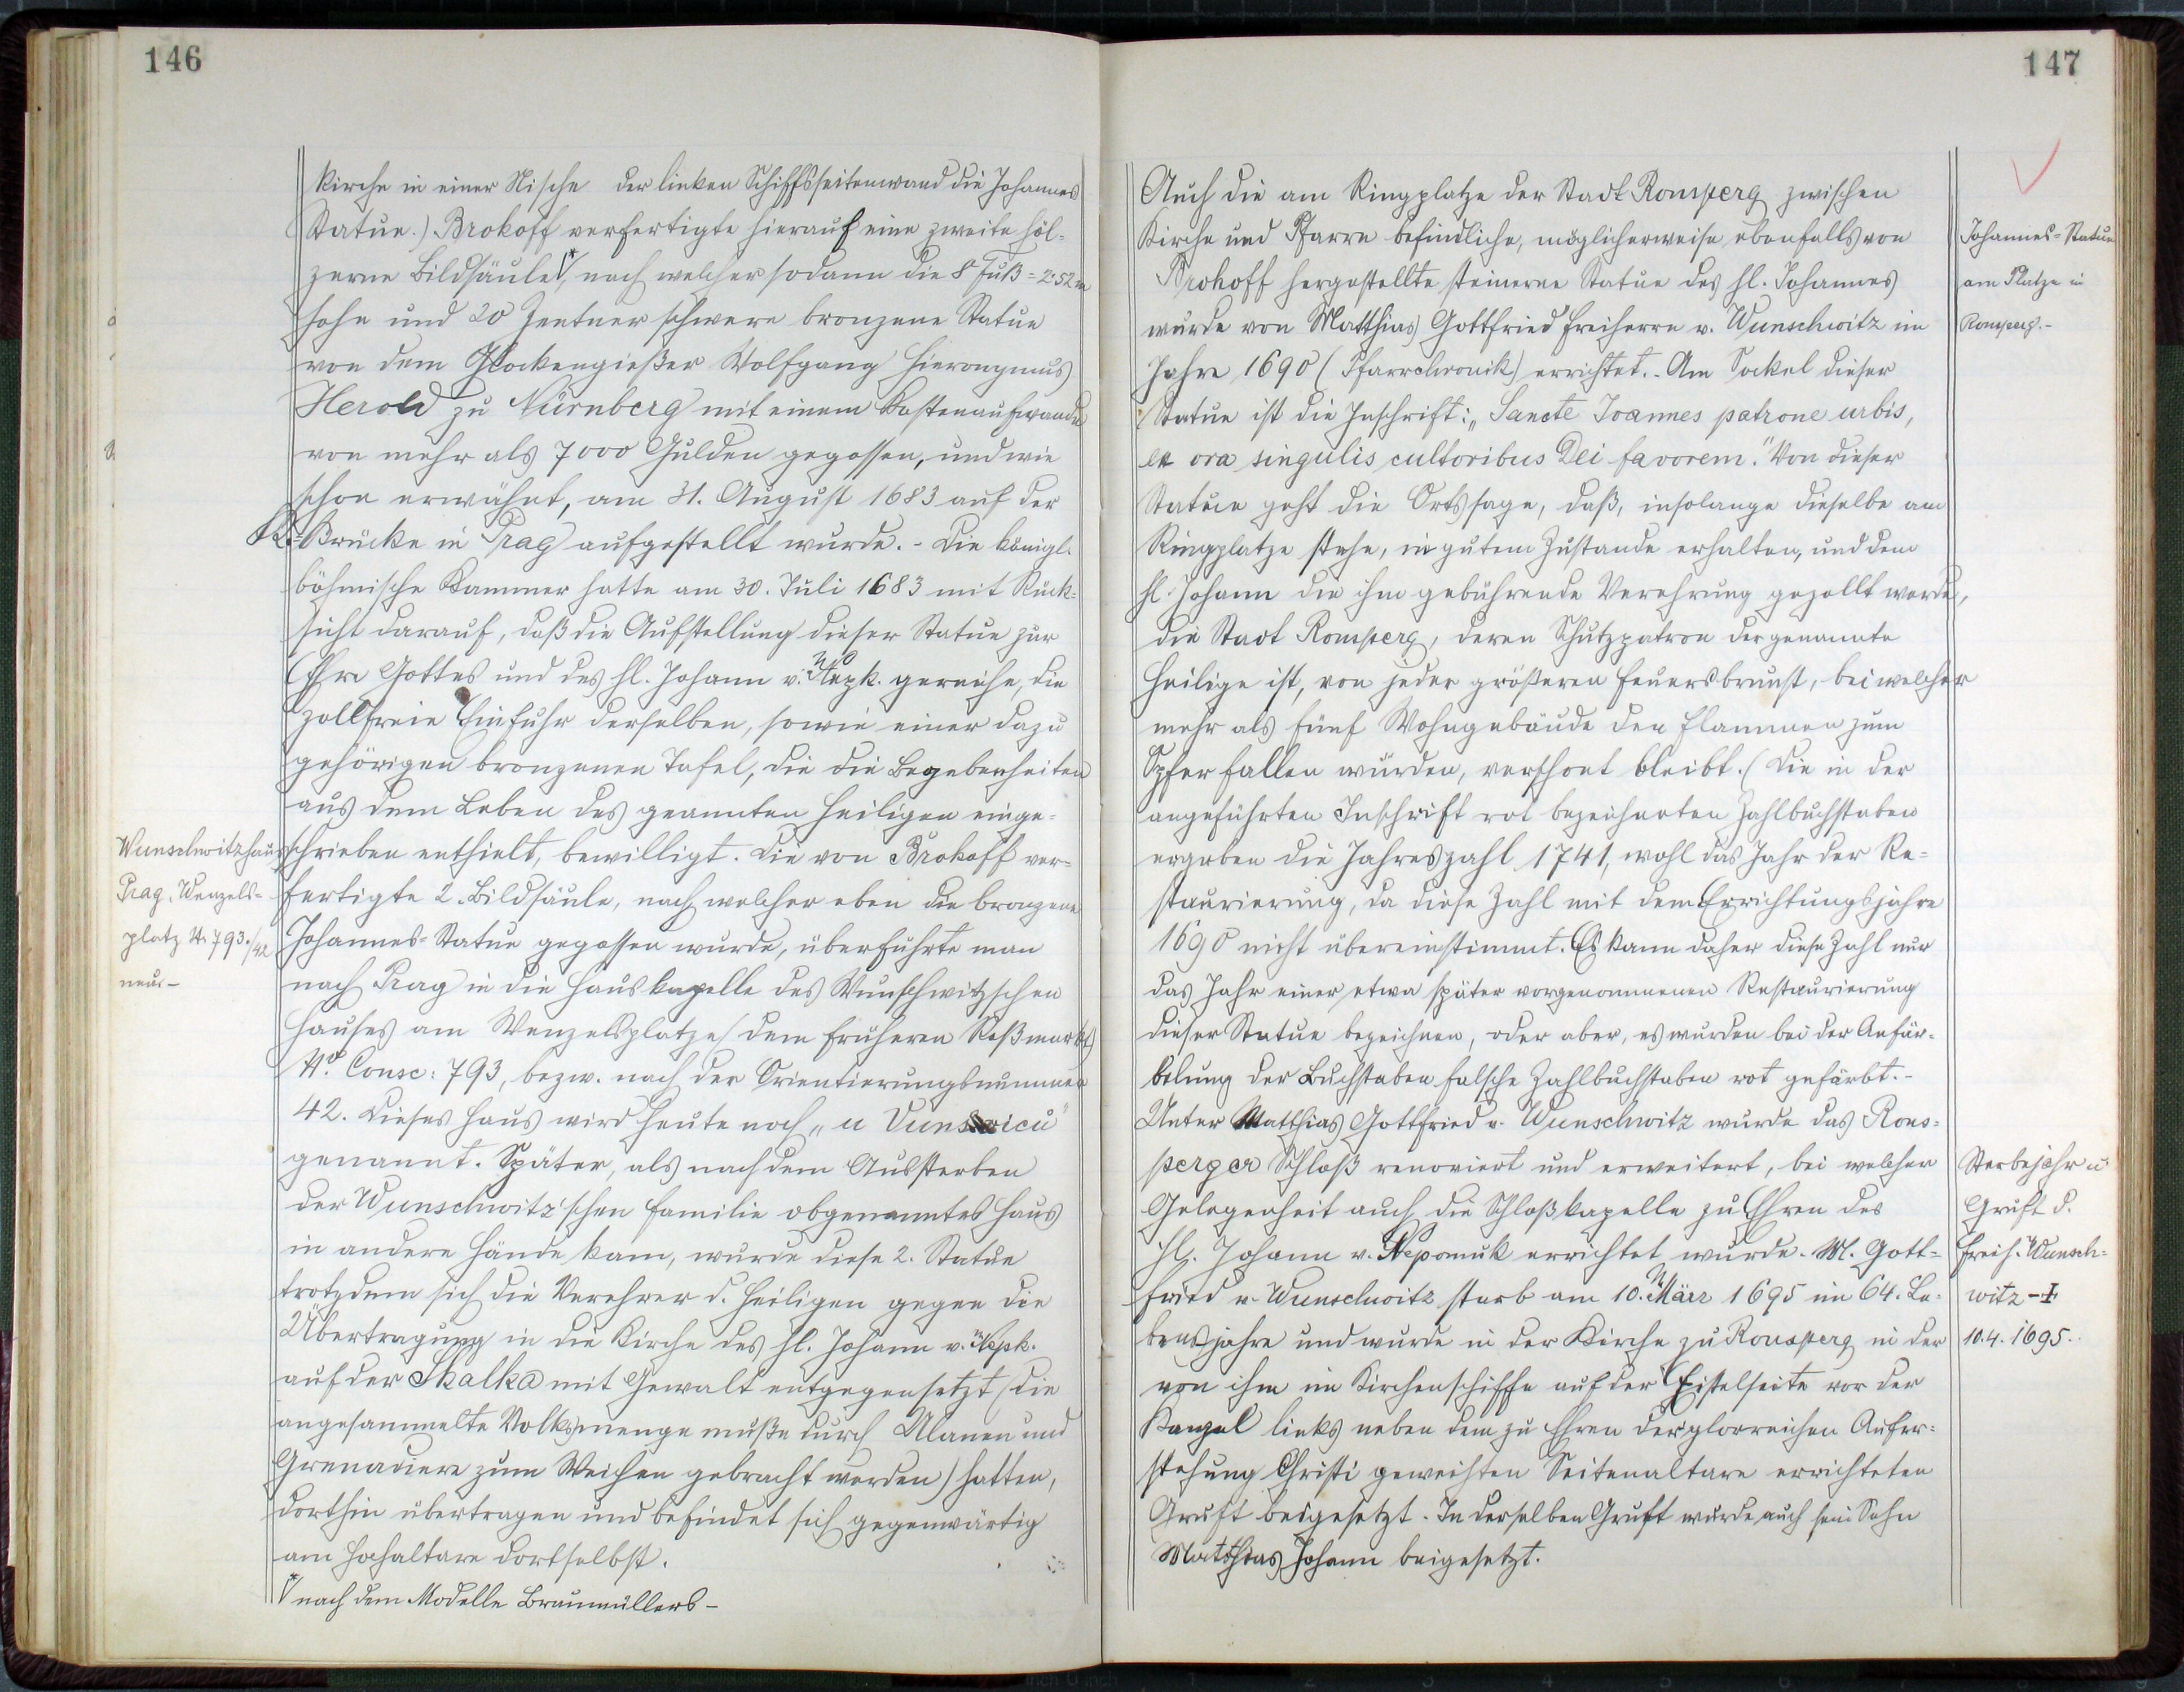 146
Kirche in einer Nische der linken Schiffsseitenwand die Johannes
Statue.) Brokoff verfertigte hierauf eine zweite höl-
zerne Bildsäule*, nach welcher sodann die 8 Fuß = 2·52 m
hohe und 20 Zentner schwere bronzene Statue
von dem Glockengießer Wolfgang Hieronymus
Herold zu Nürnberg mit einem Kostenaufwande
von mehr als 7000 Gulden gegossen, und wie
schon erwähnt, am 31. August 1683 auf der
K.-Brücke in Prag aufgestellt wurde. - Die königl.
böhmische Kammer hatte am 30. Juli 1683 mit Rück-
sicht darauf, daß die Aufstellung dieser Statue zur
Ehre Gottes und des hl. Johann v. Nepk. gereiche, die
zollfreie Einfuhr derselben, sowie einer dazu
gehörigen bronzenen Tafel, die die Begebenheiten
aus dem Leben des genannten Heiligen einge-
schrieben enthielt, bewilligt. Die von Brokoff ver-
fertigte 2. Bildsäule, nach welcher eben die bronzene
Johannes-Statue gegossen wurde, überführte man
nach Prag in die Hauskapelle des Wunschwitzschen
Hauses am Wenzelsplatze (dem früheren Roßmarkt)
No. Consc: 793, bezw. nach der Orientierungsnummer
42. Dieses Haus wird heute noch „u Vunšvicu“
genannt. Später, als nach dem Aussterben
der Wunschwitz'schen Familie obgenanntes Haus
in andere Hände kam, wurde diese 2. Statue
trotzdem sich die Verehrer d. Heiligen gegen die
Übertragung in die Kirche des hl. Johann v. Nepk.
auf der Skalka mit Gewalt entgegensetzt (die
angesammelte Volksmenge mußte durch Ulanen und
Grenadiere zum Weichen gebracht werden) hatten,
dorthin übertragen und befindet sich gegenwärtig
am Hochaltare dortselbst.
* nach dem Modelle Braunmüllers -
Wunschwitzhaus
Prag, Wenzels-
platz N. 793./42
neu -
147
Auch die am Ringplatze der Stadt Ronsperg zwischen
Kirche und Pfarre befindliche, möglicherweise ebenfalls von
Brokoff hergestellte steinerne Statue des hl. Johannes
wurde von Matthias Gottfried Freiherrn v. Wunschwitz im
Jahre 1690 (Pfarrchronik) errichtet. - Am Sockel dieser
Statue ist die Inschrift: „Sancte Joannes patrone urbis,
ex ora singulis cultoribus Dei favorem.“ Von dieser
Statue geht die Ortssage, daß, insolange dieselbe am
Ringplatze stehe, in gutem Zustande erhalten, und dem
hl. Johann die ihm gebührende Verehrung gezollt werde,
die Stadt Ronsperg, deren Schutzpatron der genannte
Heilige ist, von jeder größeren Feuersbrunst, bei welcher
mehr als fünf Wohngebäude den Flammen zum
Opfer fallen würden, verschont bleibt. (Die in der
angeführten Inschrift rot bezeichneten Zahlbuchstaben
ergeben die Jahreszahl 1741, wohl das Jahr der Re-
staurierung, da diese Zahl mit dem Errichtungsjahre
1690 nicht übereinstimmt. Es kann daher diese Zahl nur
das Jahr einer etwa später vorgenommenen Restaurierung
dieser Statue bezeichnen, oder aber, es wurden bei der Anfär-
belung der Buchstaben falsche Zahlbuchstaben rot gefärbt. -
Unter Matthias Gottfried v. Wunschwitz wurde das Rons-
perger Schloß renoviert und erweitert, bei welcher
Gelegenheit auch die Schloßkapelle zu Ehren des
hl. Johann v. Nepomuk errichtet wurde. M. Gott-
fried v. Wunschwitz starb am 10. März 1695 im 64. Le-
bensjahre und wurde in der Kirche zu Ronsperg in der
von ihm im Kirchenschiffe auf der Epistelseite vor der
Kanzel links neben dem zu Ehren der glorreichen Aufer-
stehung Christi geweihten Seitenaltare errichteten
Gruft beigesetzt. In derselben Gruft wurde auch sein Sohn
Matthias Johann beigesetzt.
Johannes-Statue
am Platze in
Ronsperg. -
Sterbejahr u
Gruft d.
Freih. Wunsch-
witz - I
10.4.1695.